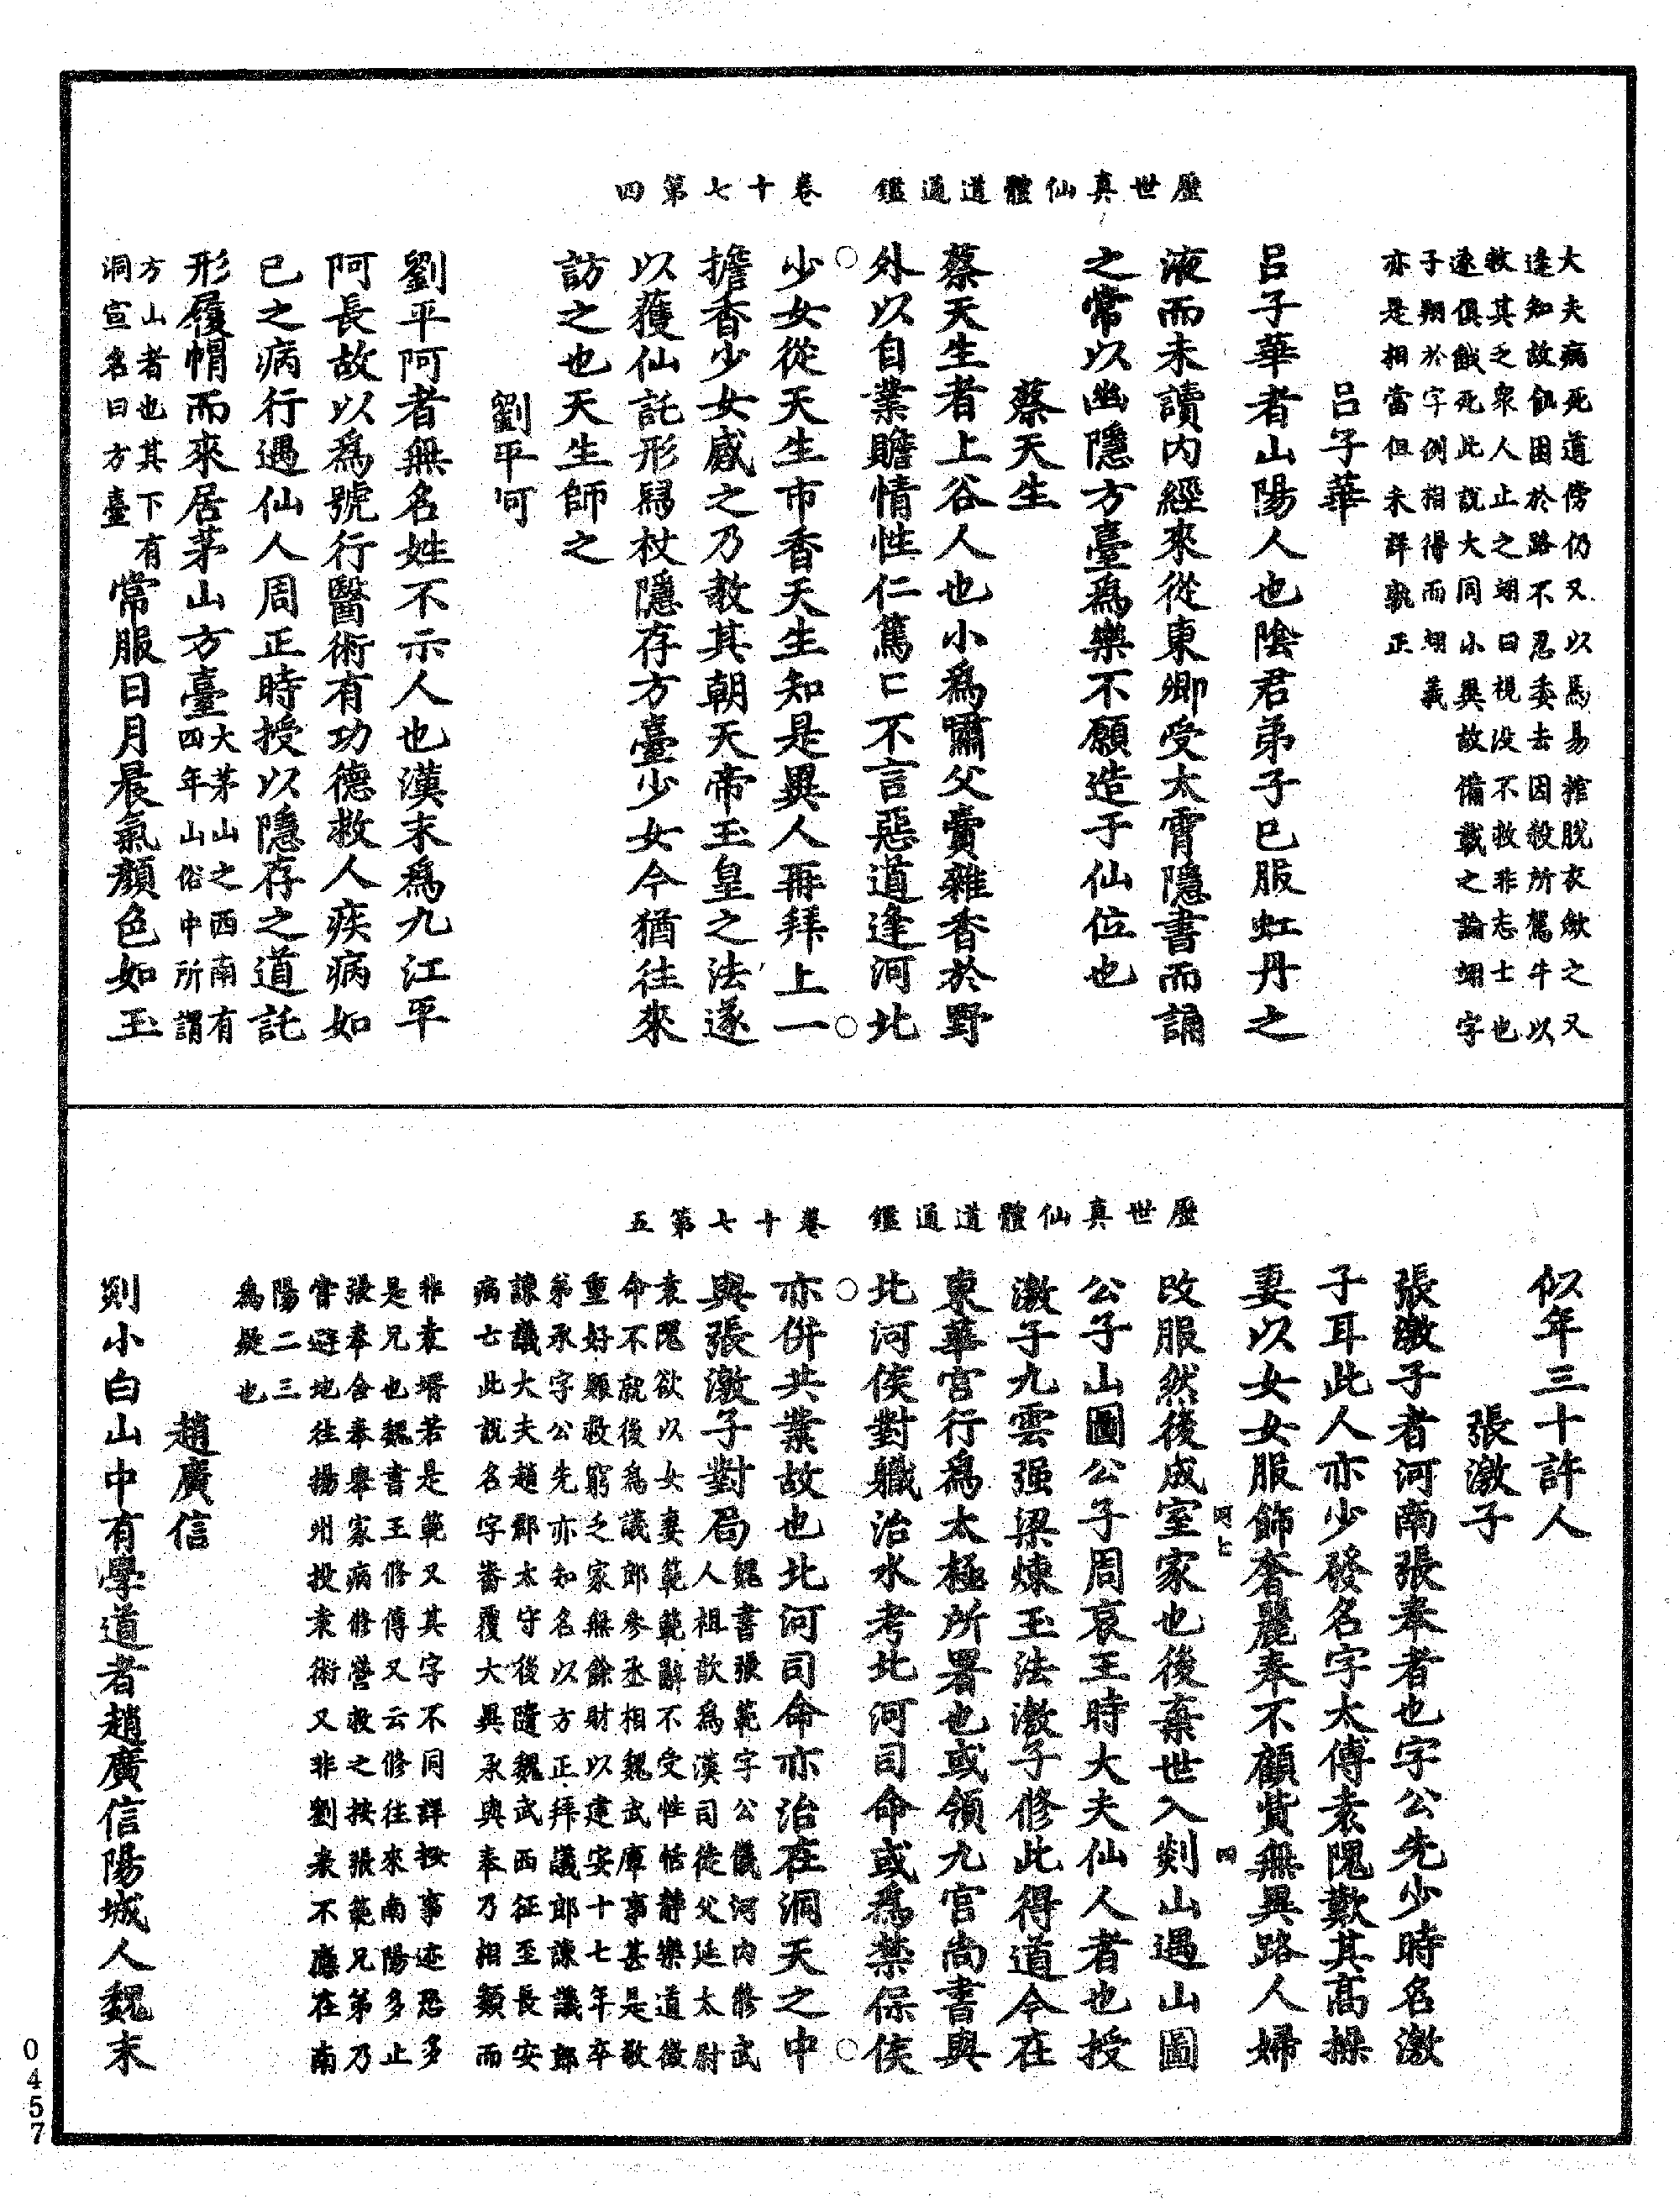 歷世真仙體道通鑑　卷十七第四
大夫病死道傍仍又以馬易棺脫衣斂之又
逢知故飢困於路不忍委去因殺所駕牛以
救其乏衆人止之翊曰視没不救非志士也
遂俱餓死此説大同小異故備載之論翊字
子翔於字例相得而翊義
亦是相當但未詳孰正
呂子華
呂子華者山陽人也陰君弟子已服虹丹之
液而未讀内經來從東卿受太霄隱書而誦
之常以幽隱方臺爲樂不願造于仙位也
蔡天生
蔡天生者上谷人也小爲嘯父賣雜香於野
外以自業贍情性仁篤口不言惡道逢河北
少女從天生市香天生知是異人再拜上一
擔香少女感之乃教其朝天帝玉皇之法遂
以獲仙託形舄杖隱存方臺少女今猶往來
訪之也天生師之
劉平呵
劉平阿者無名姓不示人也漢末爲九江平
阿長故以爲號行醫術有功德救人疾病如
己之病行遇仙人周正時授以隱存之道託
形履帽而來居茅山方臺大茅山之西南有
四年山俗中所謂
方山者也其下有
洞宣名曰方臺常服日月晨氣顔色如玉
歷世真仙體道通鑑　卷十七第五
似年三十許人
張激子
張激子者河南張奉者也字公先少時名激
子耳此人亦少發名字太傅袁隗歎其高操
妻以女女服飾奢麗奉不顧貲無異路人婦
改服然後成室家也後棄世入剡山遇山圖
公子山圖公子周哀王時大夫仙人者也授
激子九雲强梁煉玉法激子修此得道今在
東華宮行爲太極所署也或領九宮尚書與
北河侯對職治水考北河司命或爲禁保侯
亦併共業故也北河司命亦治在洞天之中
與張激子對局魏書張範字公儀河内修武
人祖歆爲漢司徒父延太尉
袁隗欲以女妻範範辭不受性恬靜樂道徵
命不就後爲議郎參丞相魏武庫事甚是敬
重好賑救窮乏家無餘財以建安十七年卒
弟承字公先亦知名以方正拜議郎諫議郎
諫議大夫趙郡太守後隨魏武西征至長安
病亡此説名字舛覆大異承與奉乃相類而
非袁壻若是範又其字不同詳撿事迹恐多
是兄也魏書王修傳又云修往來南陽多止
張奉舍奉舉家病修營救之按張範兄弟乃
嘗避地往揚州投袁術又非劉表不應在南
陽二三
爲疑也
趙廣信
剡小白山中有學道者趙廣信陽城人魏末
四
0457